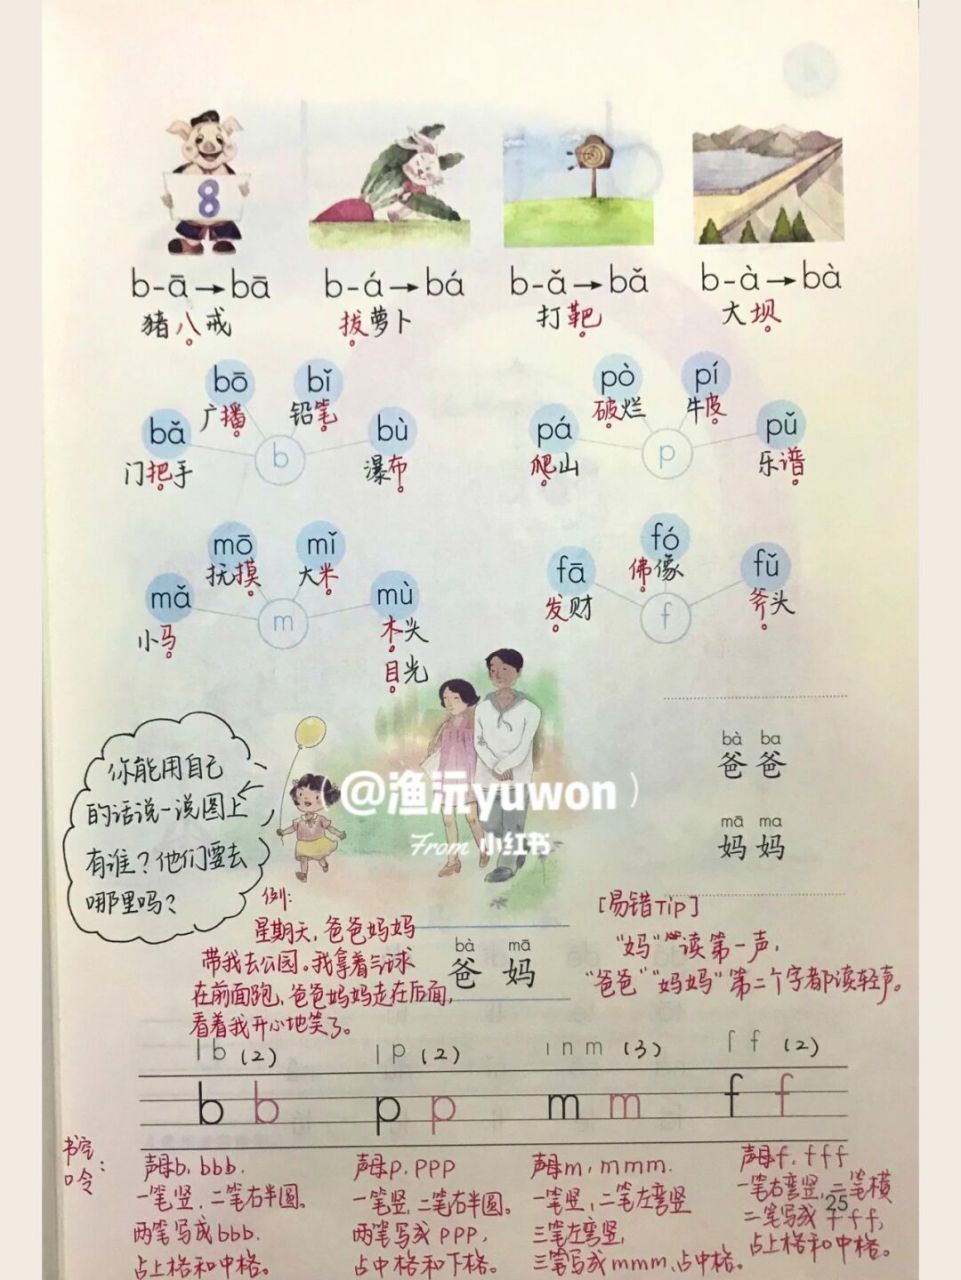 8
b-ā→bā b-á→bá b-ǎ→bǎ b-à→bà
猪八戒 拔萝卜 打靶 大坝
bō bǐ pò pí
广播 铅笔 破烂 牛皮
bǎ bù pá pǔ
b p
门把手 瀑布 爬山 乐谱
mō mǐ fó
抚摸 大米 佛像
mǎ mù fā fǔ
m f
小马 木头 发财 斧头
目光
bà ba
爸爸
mā ma
妈妈
你能用自己
的话说一说图上
有谁?他们要去
哪里吗?
(@渔沅yuwon)
From 小红书
例:
星期天,爸爸妈妈
带我去公园。我拿着气球
在前面跑,爸爸妈妈走在后面,
看着我开心地笑了。
bà mā
爸 妈
[易错Tip]
"妈"读第一声,
"爸爸""妈妈"第二个字都读轻声。
l b (2) l p (2) ı n m (3) f f (2)
b b p p m m f f
书空
口令:
声母b,bbb.
一笔竖,二笔右半圆。
两笔写成bbb.
占上格和中格。
声母p,ppp
一笔竖,二笔右半圆。
两笔写成ppp,
占中格和下格。
声母m,mmm.
一笔竖,二笔左弯竖
三笔左弯竖,
三笔写成mmm,占中格。
声母f,fff
一笔右弯竖,二笔横
二笔写成fff,
占上格和中格。
25